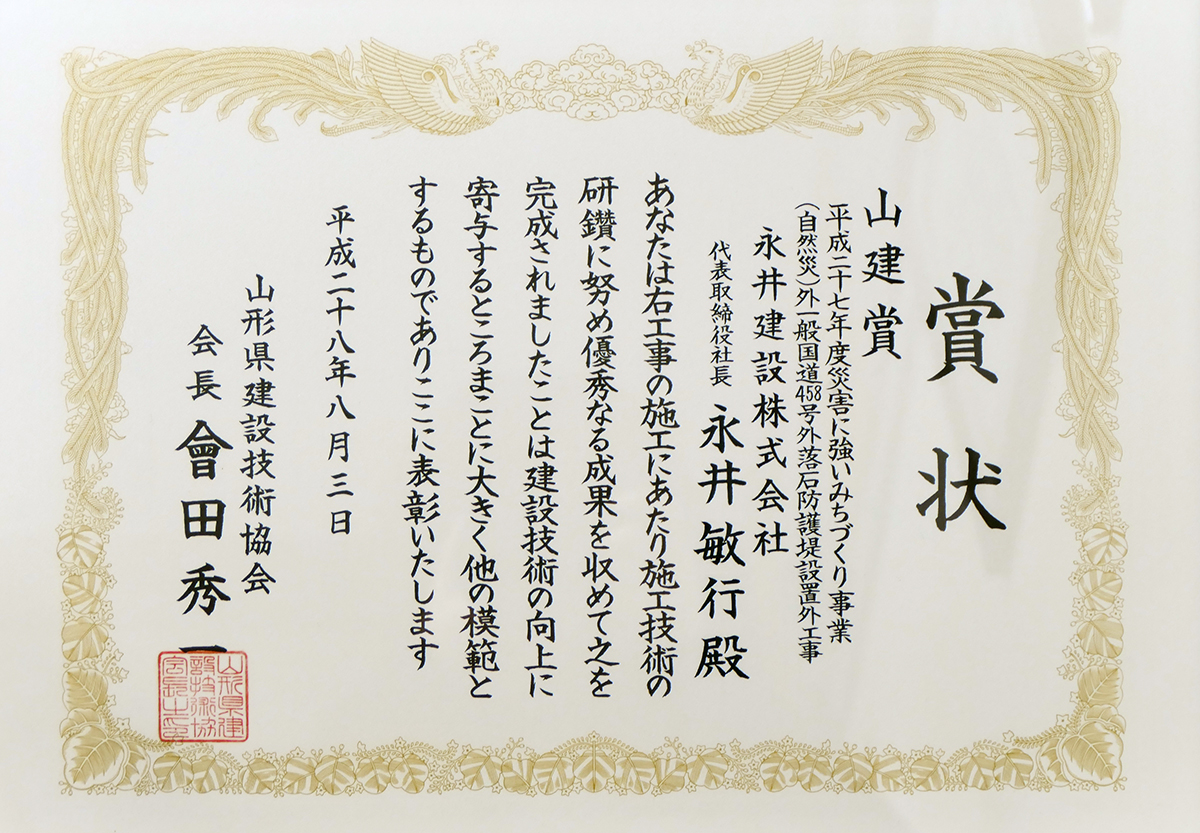 賞状
山建賞
平成二十七年度災害に強いみちづくり事業
(自然災)外一般国道458号外落石防護堤設置外工事
永井建設株式会社
代表取締役社長 永井敏行殿
あなたは右工事の施工にあたり施工技術の
研鑽に努め優秀なる成果を収めて之を
完成されましたことは建設技術の向上に
寄与するところまことに大きく他の模範と
するものでありここに表彰いたします
平成二十八年八月三日
山形県建設技術協会
会長 會田秀一
山形県建
設技術協
会長之印